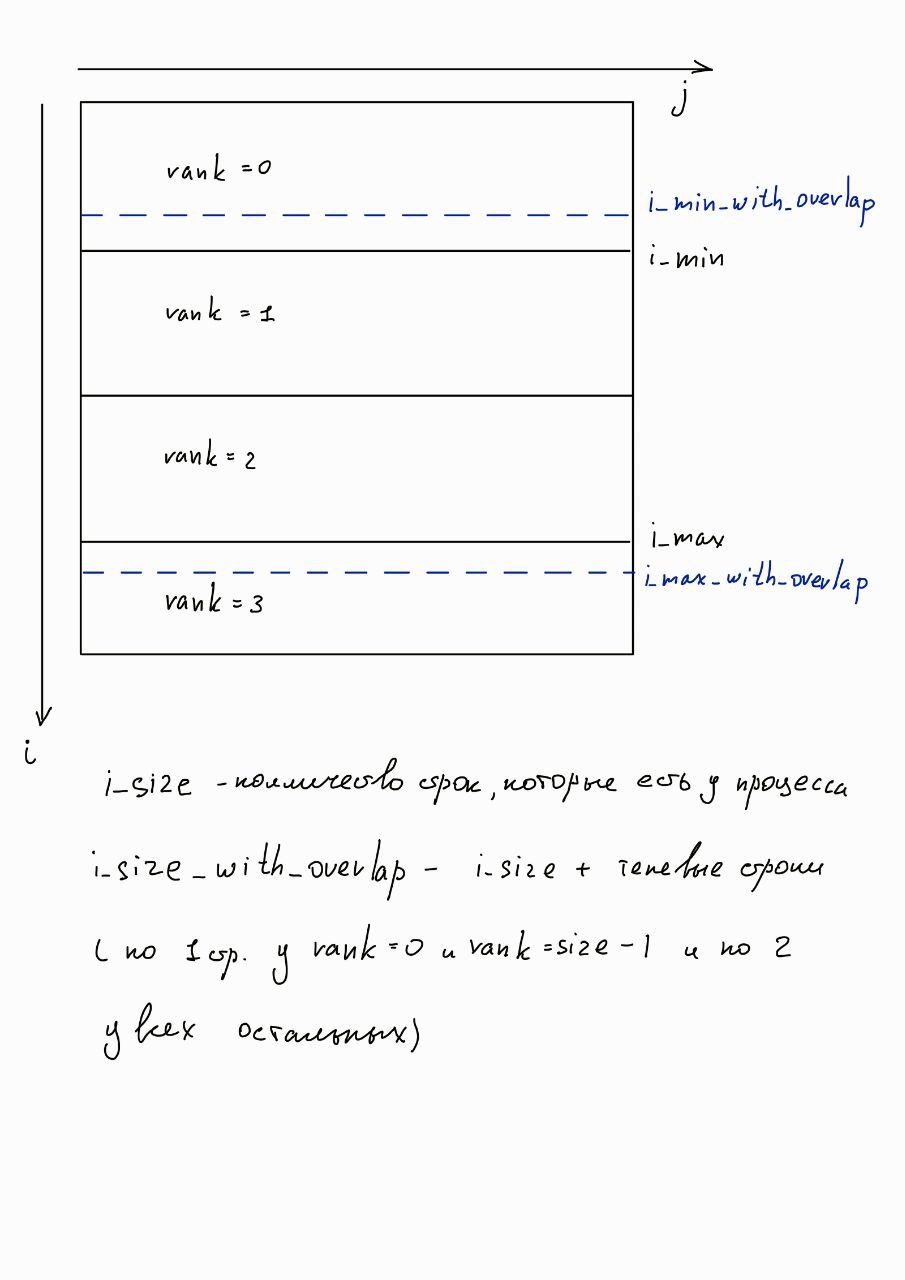 j
rank = 0
i_min_with_overlap
i_min
rank = 1
rank = 2
i_max
i_max_with_overlap
rank = 3
i
i_size - колличество срок, которые есть у процесса
i_size_with_overlap - i_size + теневые строки
( по 1 стр. у rank = 0 и rank = size - 1 и по 2
у всех остальных)